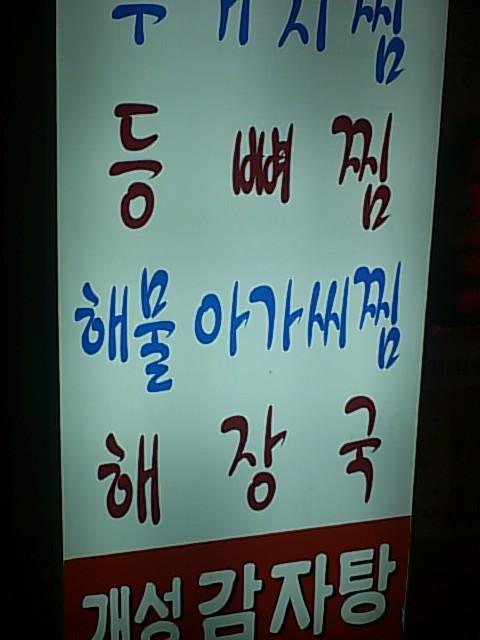 우거지찜
등뼈찜
해물 아가씨찜
해장국
개성감자탕